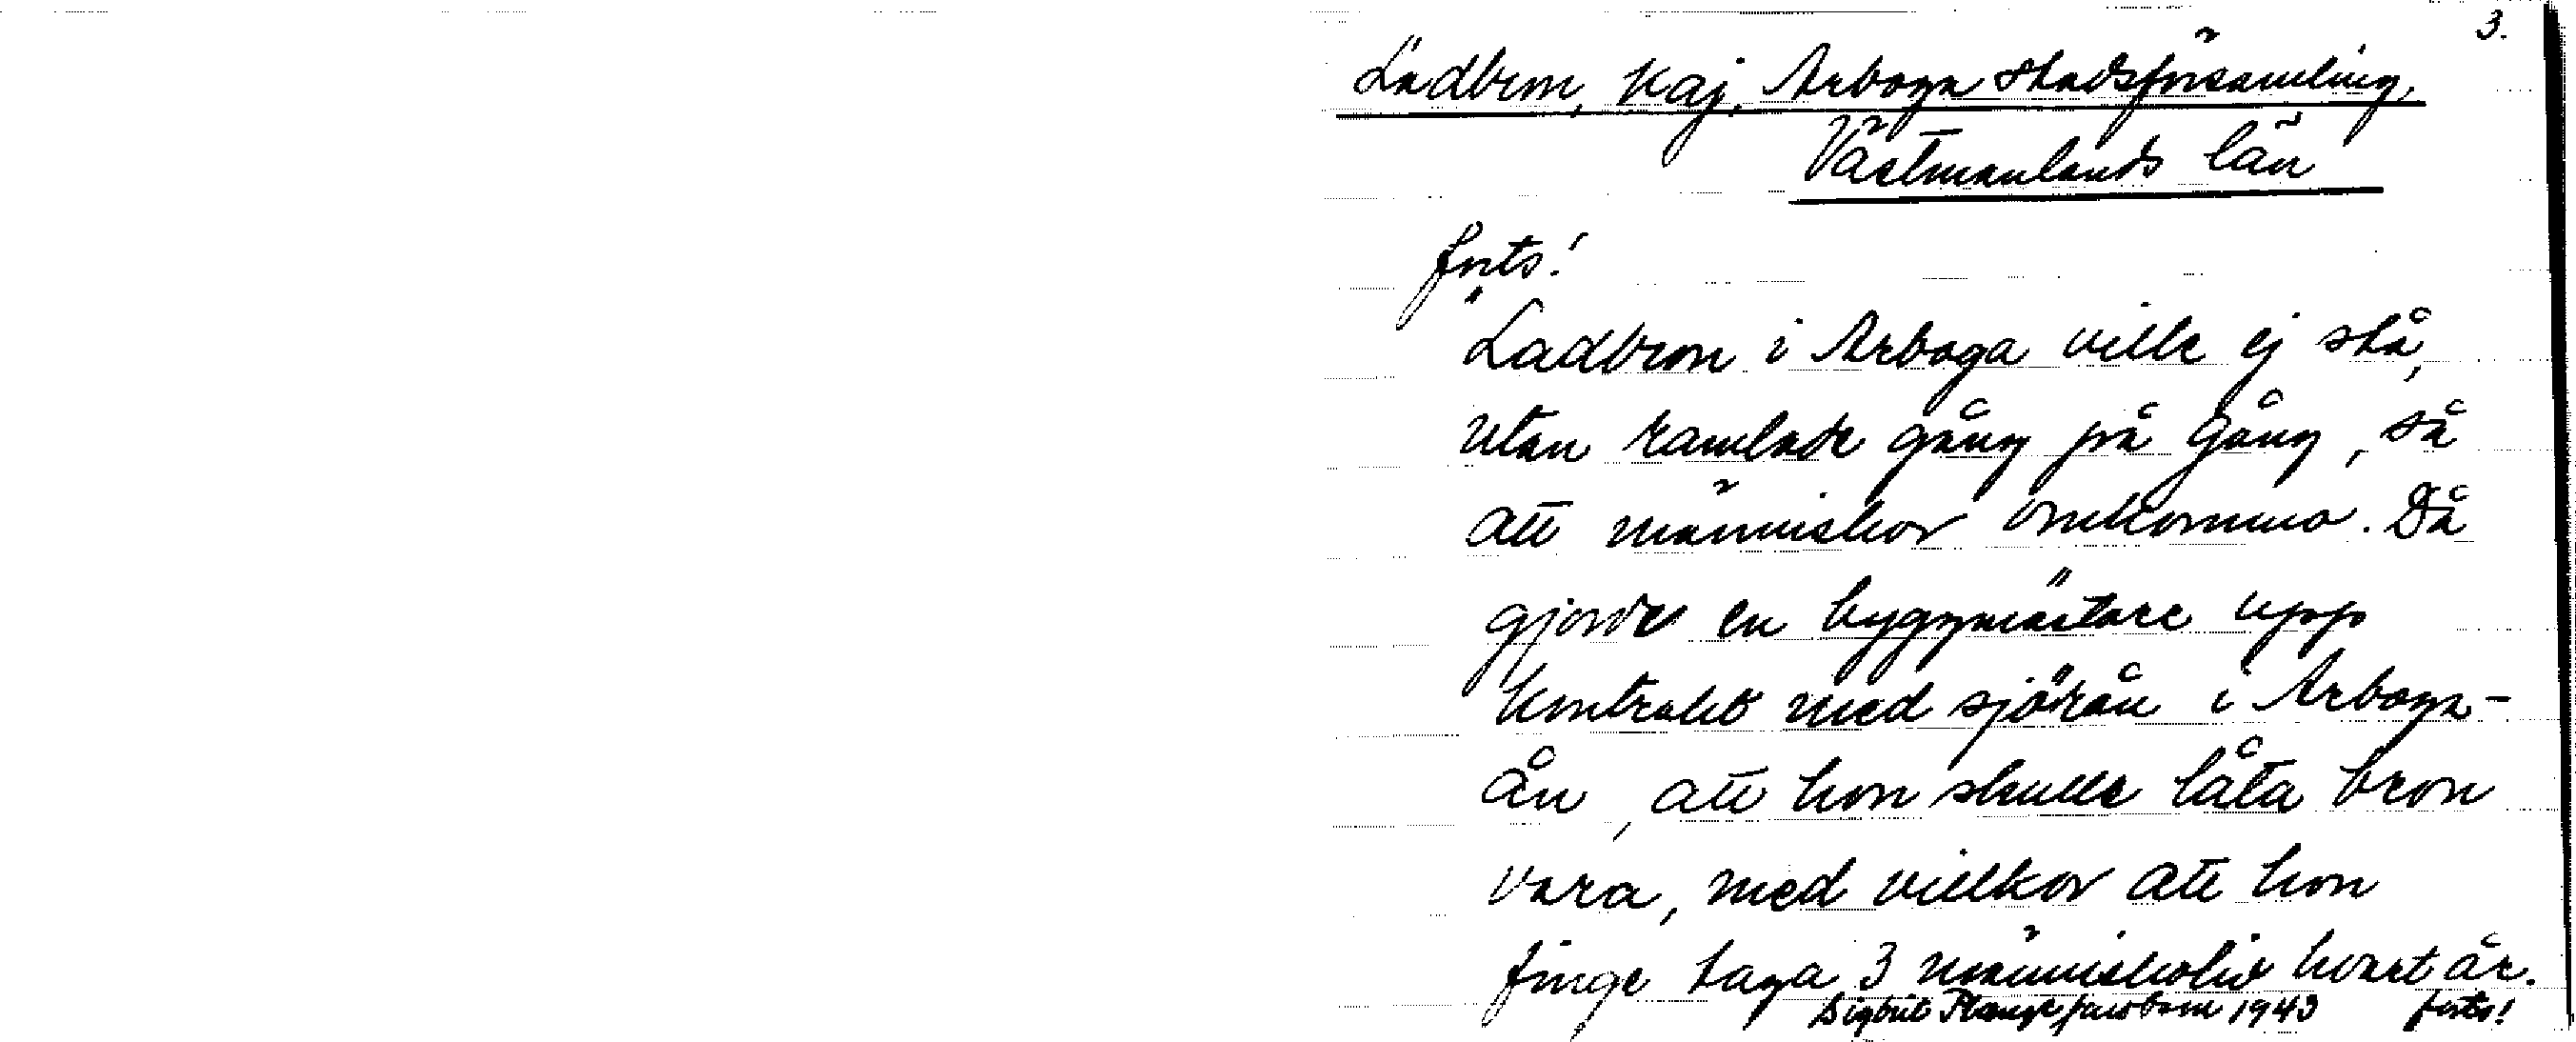 3.
Ladbron, Kaj, Arboga stadsförsamling,
Västmanlands län
forts!
"Ladbron i Arboga ville ej stå,
utan ramlade gång på gång, så
att människor omkommo. Då
gjorde en byggmästare upp
kontrakt med sjörån i Arboga-
ån, att hon skulle låta bron
vara, med villkor att hon
finge taga 3 människoliv vart år.
Sigbrit Plange Jacobson 1943 forts!